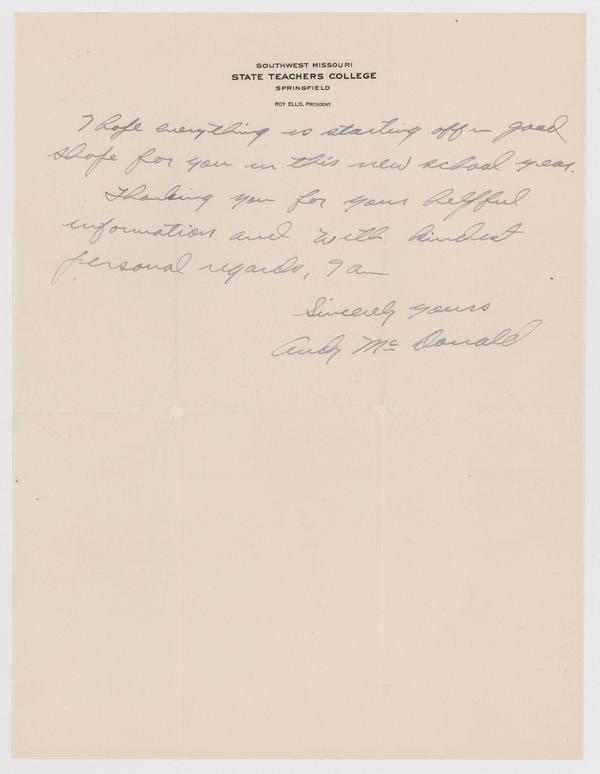 SOUTHWEST MISSOURI
STATE TEACHERS COLLEGE
SPRINGFIELD
ROY ELLIS, PRESIDENT
I hope everything is starting off in good
shape for you in this new school year.
Thanking you for your helpful
information and with kindest
personal regards, I am
Sincerely yours
Andy McDonald